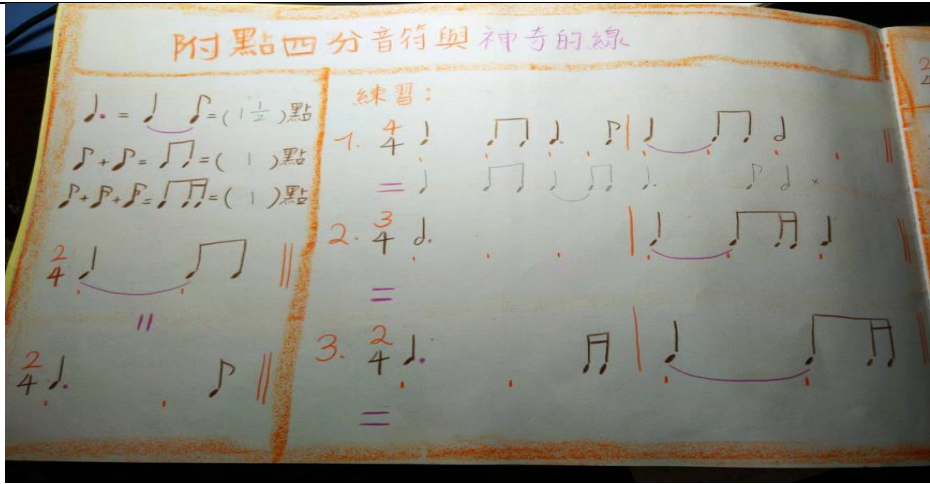 附點四分音符與神奇的線
♩. = ♩ ♪ = ( 1 1/2 )點
♪ + ♪ = ♫ = ( 1 )點
♪ + ♬ + ♬ = ♫♬ = ( 1 )點
2/4
=
2/4
練習:
1. 4/4
=
2. 3/4
=
3. 2/4
=
2/4